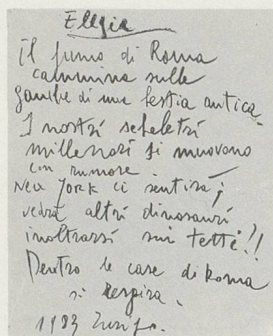 Elegia
Il fumo di Roma
cammina sulle
gambe di una bestia antica.
I nostri scheletri
millenari si muovono
con rumore.
New York ci sentirà;
vedrà altri dinosauri
inoltrarsi sui tetti!!
Dentro le case di Roma
si respira.
1983